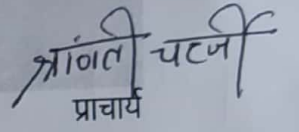 श्रांवती चटर्जी
प्राचार्य